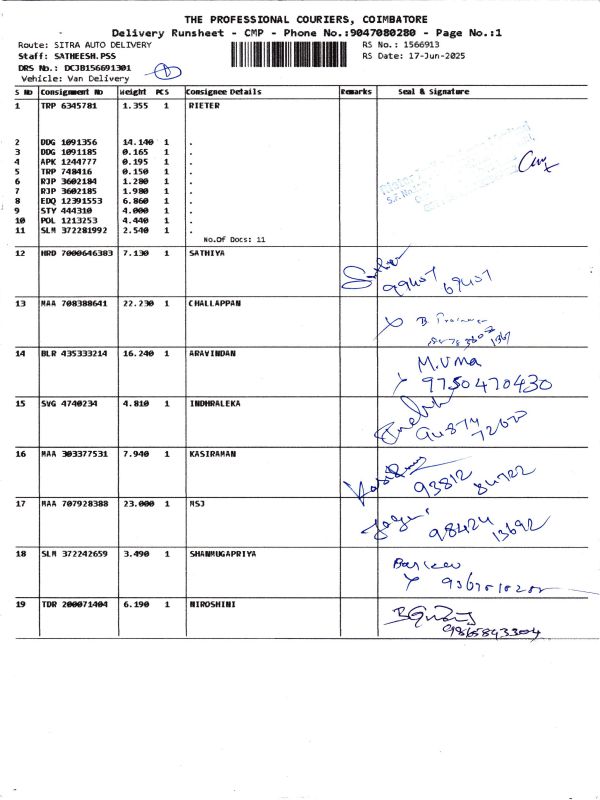 THE PROFESSIONAL COURIERS, COIMBATORE
Delivery Runsheet - CMP - Phone No.:9047080280 - Page No.:1
Route: SITRA AUTO DELIVERY
RS No.: 1566913
Staff: SATHEESH.PSS
RS Date: 17-Jun-2025
DRS No.: DCJB156691301
Vehicle: Van Delivery
S No Consignment No Weight PCS Consignee Details Remarks Seal & Signature
1 TRP 6345781 1.355 1 RIETER
2 DDG 1091356 14.140 1 .
3 DDG 1091185 0.165 1 .
4 APK 1244777 0.195 1 .
5 TRP 748416 0.150 1 .
6 RJP 3602184 1.280 1 .
7 RJP 3602185 1.980 1 .
8 EDQ 12391553 6.860 1 .
9 STY 444310 4.000 1 .
10 POL 1213253 4.440 1 .
11 SLM 372281992 2.540 1 .
No.Of Docs: 11
12 HRD 7000646383 7.130 1 SATHIYA
99407 69407
13 MAA 708388641 22.230 1 CHALLAPPAN
14 BLR 435333214 16.240 1 ARAVINDAN
M.UMA
9750470430
15 SVG 4740234 4.810 1 INDHRALEKA
16 MAA 303377531 7.940 1 KASIRAMAN
93812 84722
17 MAA 707928388 23.000 1 MSJ
98424 13692
18 SLM 372242659 3.490 1 SHANMUGAPRIYA
19 TDR 200071404 6.190 1 NIROSHINI
9865843304